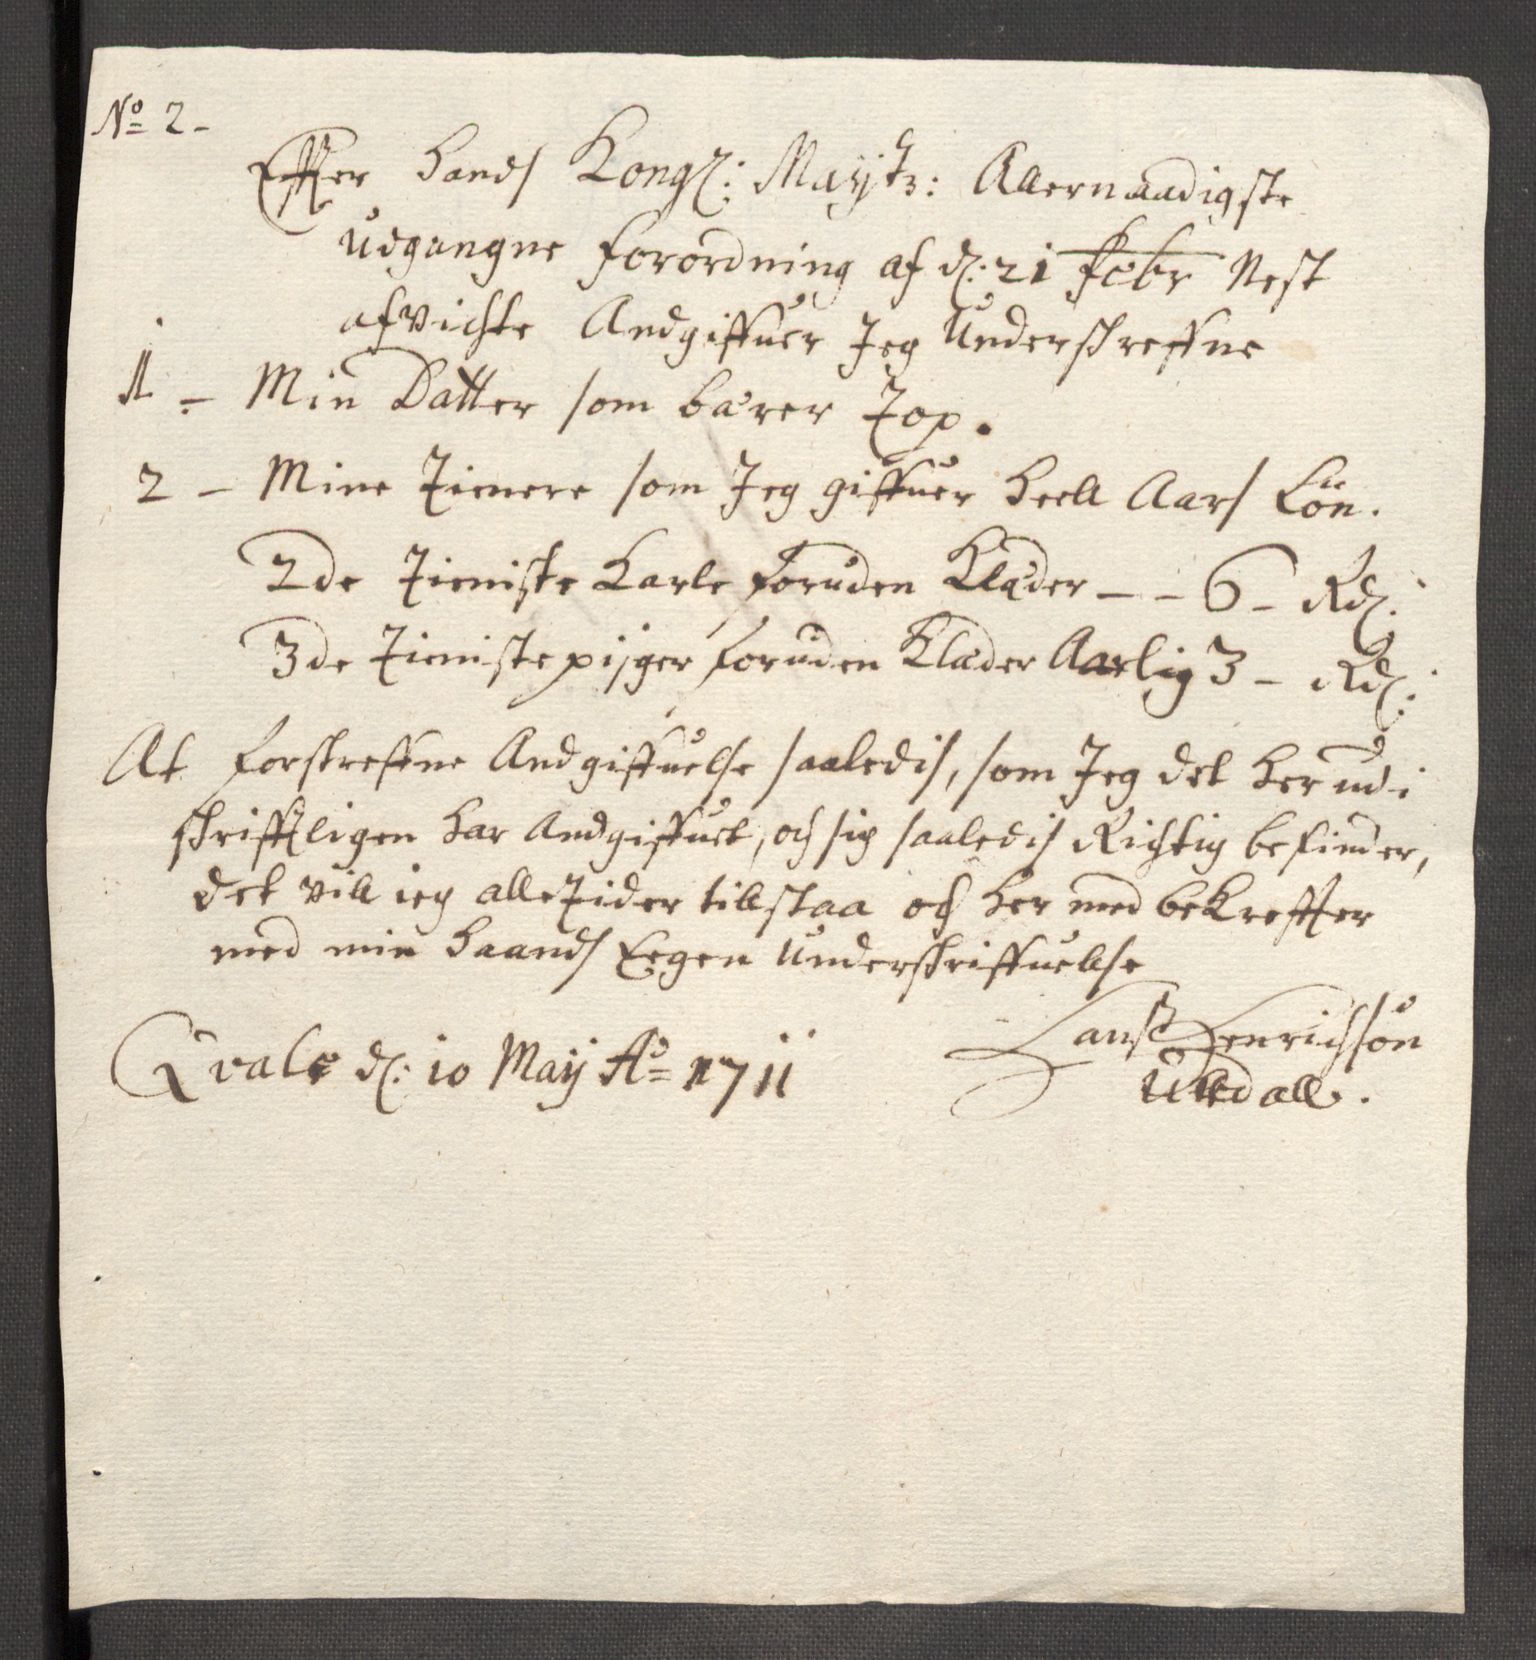 No 2 -
Effter hands Kongl: Mayjts: Allernaadigste
Udgangne forordning af d: 21 Febr Nest
afvichte Andgiffuer Jeg Underskreffne
1 - Min Datter som bærer Top.
2 - Mine Tienere som Jeg giffuer heell Aars Lön.
2de Tieniste Karle foruden Klæder - - 6 - Rd:
3de Tienistepijger foruden Klæder Aarlig 3 - Rd:
At forskreffne Andgiffuelse saaledis, som Jeg det her udi
skrifftligen har Andgiffuet, och sig saaledis Richtig befinder,
det vill ieg alle Tider tillstaa och her med bekreffter
med min haands Eegen Underskriffuellse
Qvale d: 10 Maij Ao 1711
Hans Henrichsön
Uttdall.